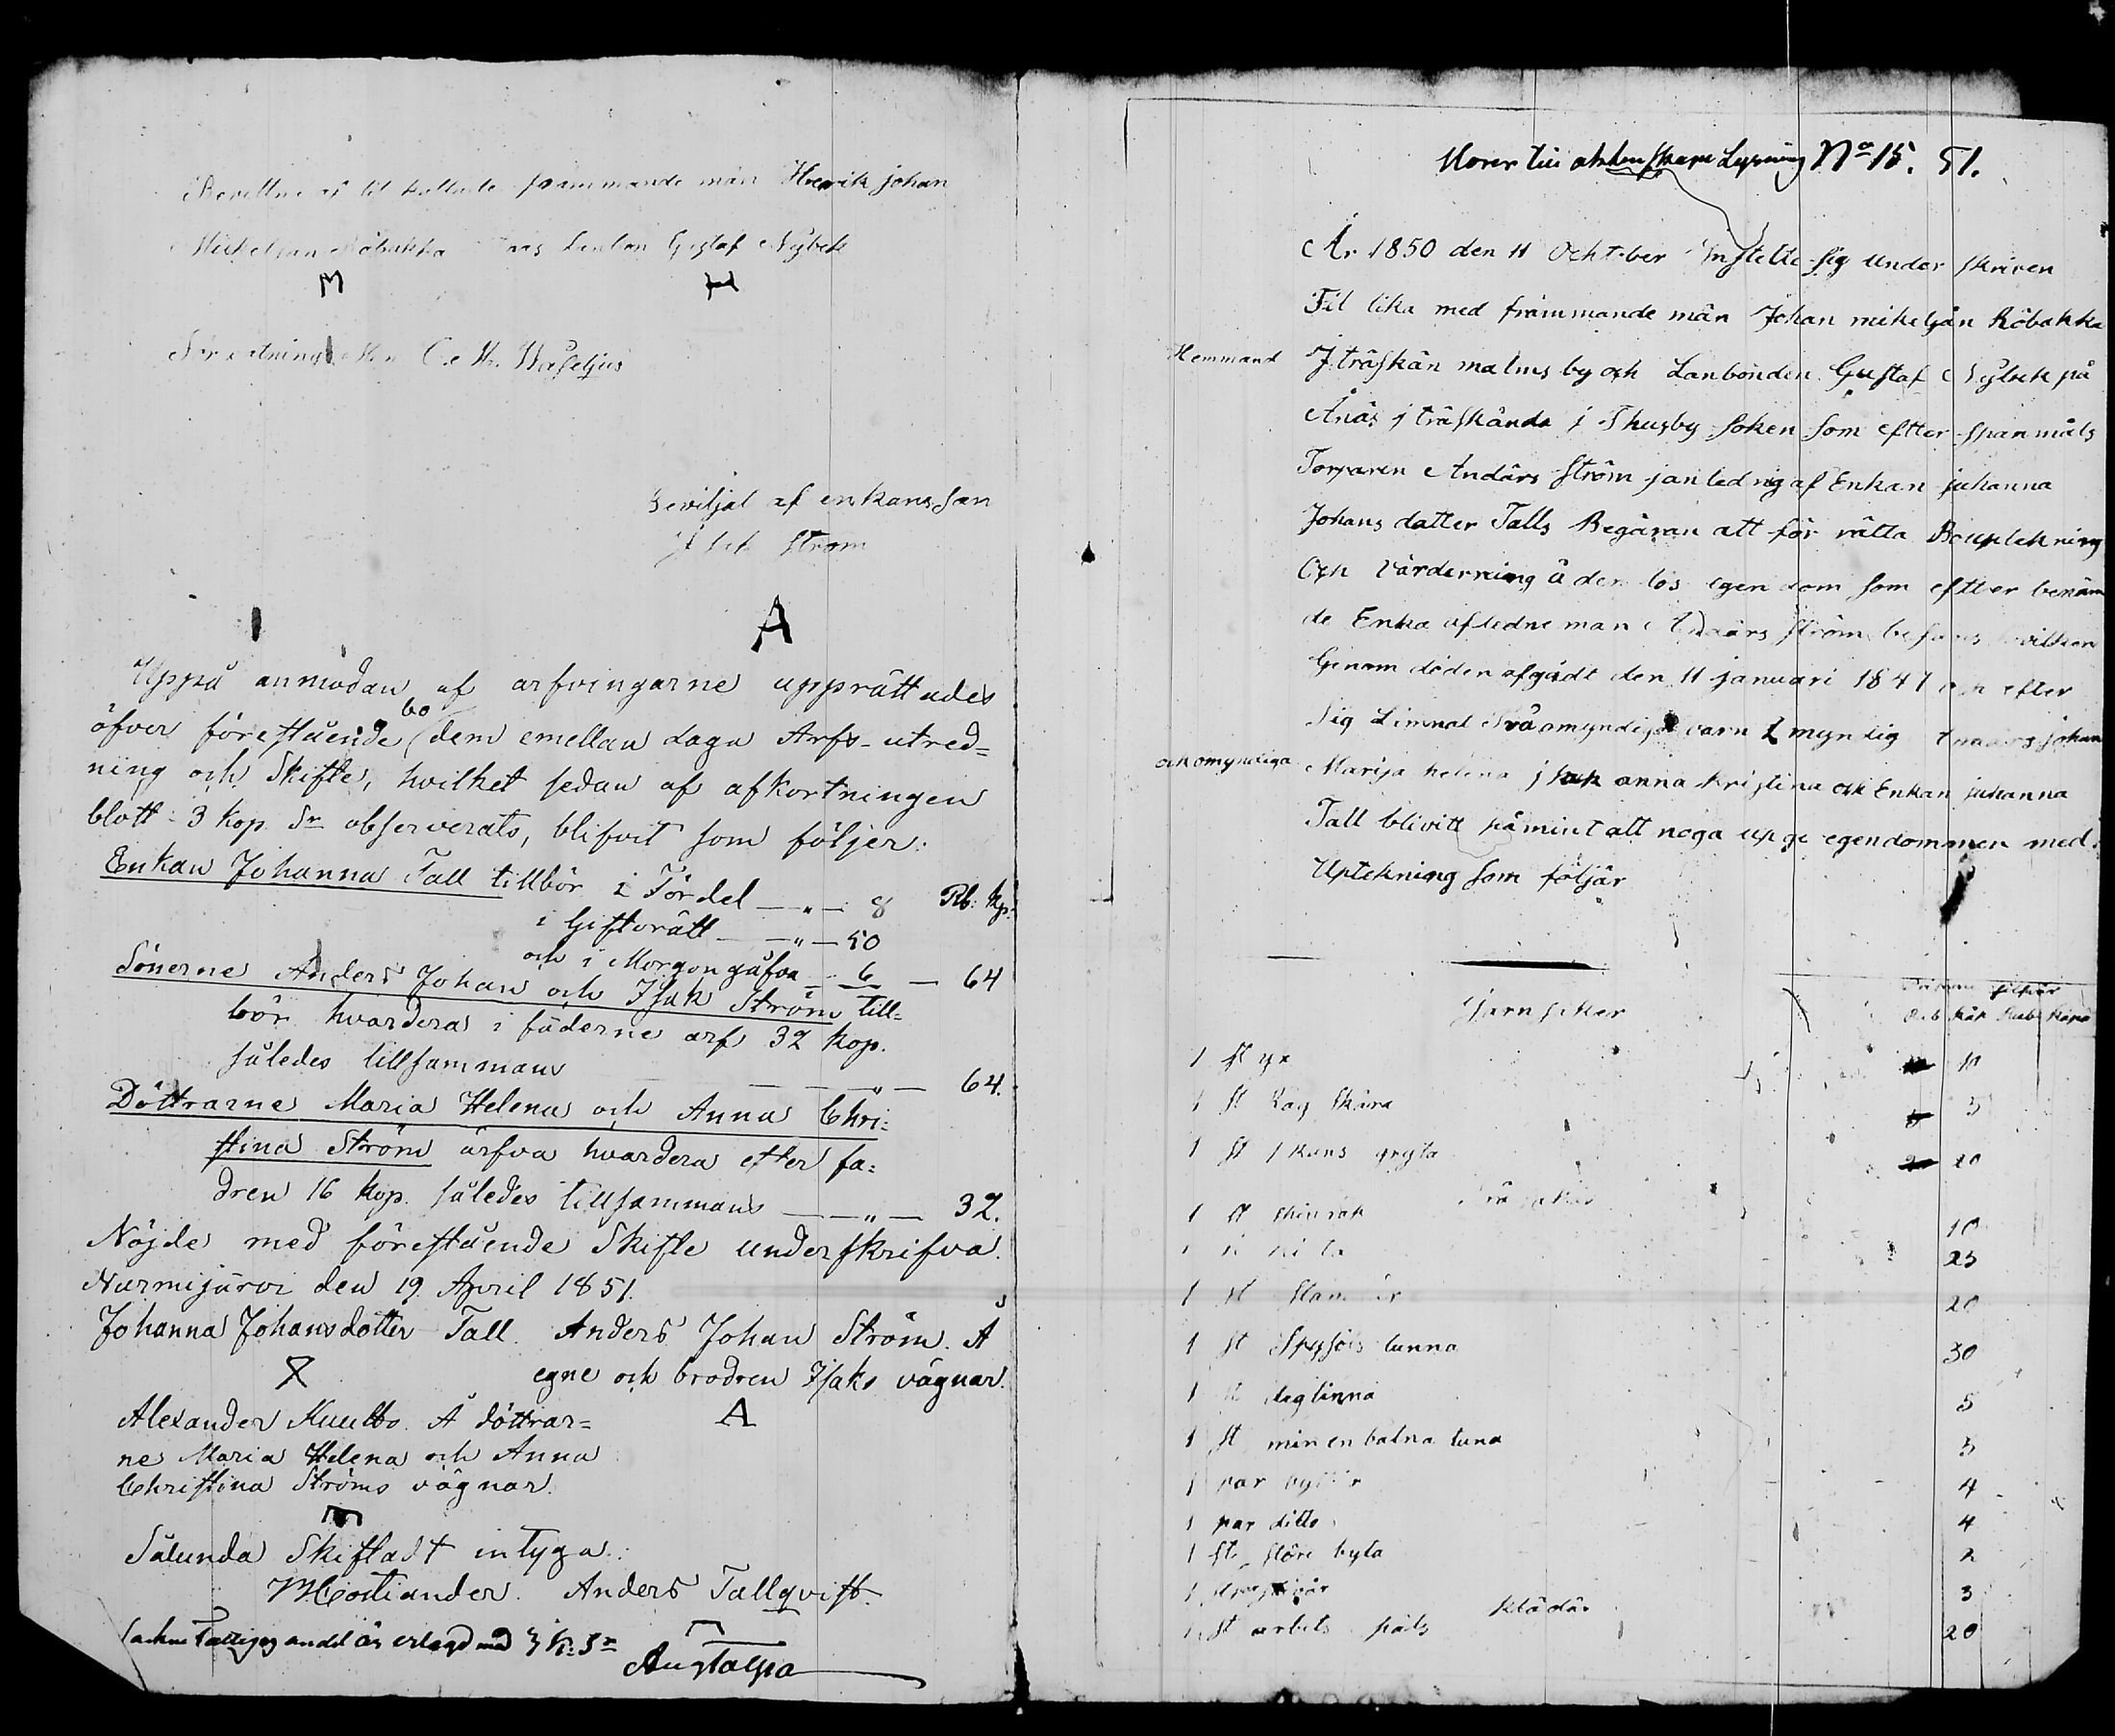 til kallade främmande män Henrik johan
Gustaf Nybek
M H
C. Hr. Waseljus
Beviljat af enkans son
Isak Ström
A
Uppå anmodan af arfvingarne upprättades
öfver föreståeṅde bo dem emellan laga Arfs-utred=
ning och Skifte, hvilket sedan af afkortningen
blott 3 kop. Sr observerats, blifvit som följer:
Enkan Johanna Tall tillbör i Fördel — „ — 8 Rb: Kp:
i Giftorätt — „ — 50
och i Morgongåfva — 6 — 64
Sönerne Anders Johan och Isak Ström till=
bör hvardera i fäderne arf 32 kop.
således tillsammans — — „ — 64.
Döttrarne Maria Helena och Anna Chri=
stina Ström ärfva hvardera efter fa=
dren 16 kop. således tillsammans — — „ — 32.
Nöjde med förestående Skifte underskrifva.
Nurmijärvi den 19 April 1851.
Johanna Johansdotter Tall. Anders Johan Ström. Å
X egne och brodren Isaks vägnar.
Alexander Å döttrar= A
ne Maria Helena och Anna
Christina Ströms vägnar.
Sålunda Skiftadt intyga:
Anders Tallqvist.
andel är erlagd med 3 k: Sr
Lysning No 15. 51.
År 1850 den 11 Ochtober Instelte sig under skriven
Til lika med främmande män Johan mikelsån Råbakka
Hemmand J träskän malms by och Lanbonden Gustaf Nybek på
Ånäs j träskända i Thusby soken som efter span måls
Torparen Andärs Ström j anlednig af Enkan juhanna
Johans datter Talls Begäran att för rätta Bouptekning
Och Värderning å den lös egen dom som efter benäm
de Enka afledne man Andärs Ström befans vilken
Genom döden afgådt den 11 januari 1847 och efter
Sig Limnat Två omyndiga varn 2 myndig Andärs johan
och omyndiga Marija helena jsak anna kristina och Enkan juhanna
Tall blivitt påmint att noga up ge egendommen med
Uptekning som följär
Järn saker
1 st yx 10
1 st Rag skära 5
1 st j kans gryta 20
Trä saker
1 st 10
1 st 25
1 st 20
1 st tunna 30
1 st 5
1 st tuna 5
1 par 4
1 par ditto 4
1 st störe byta 2
1 3
klädär
1 st arbets päls 20